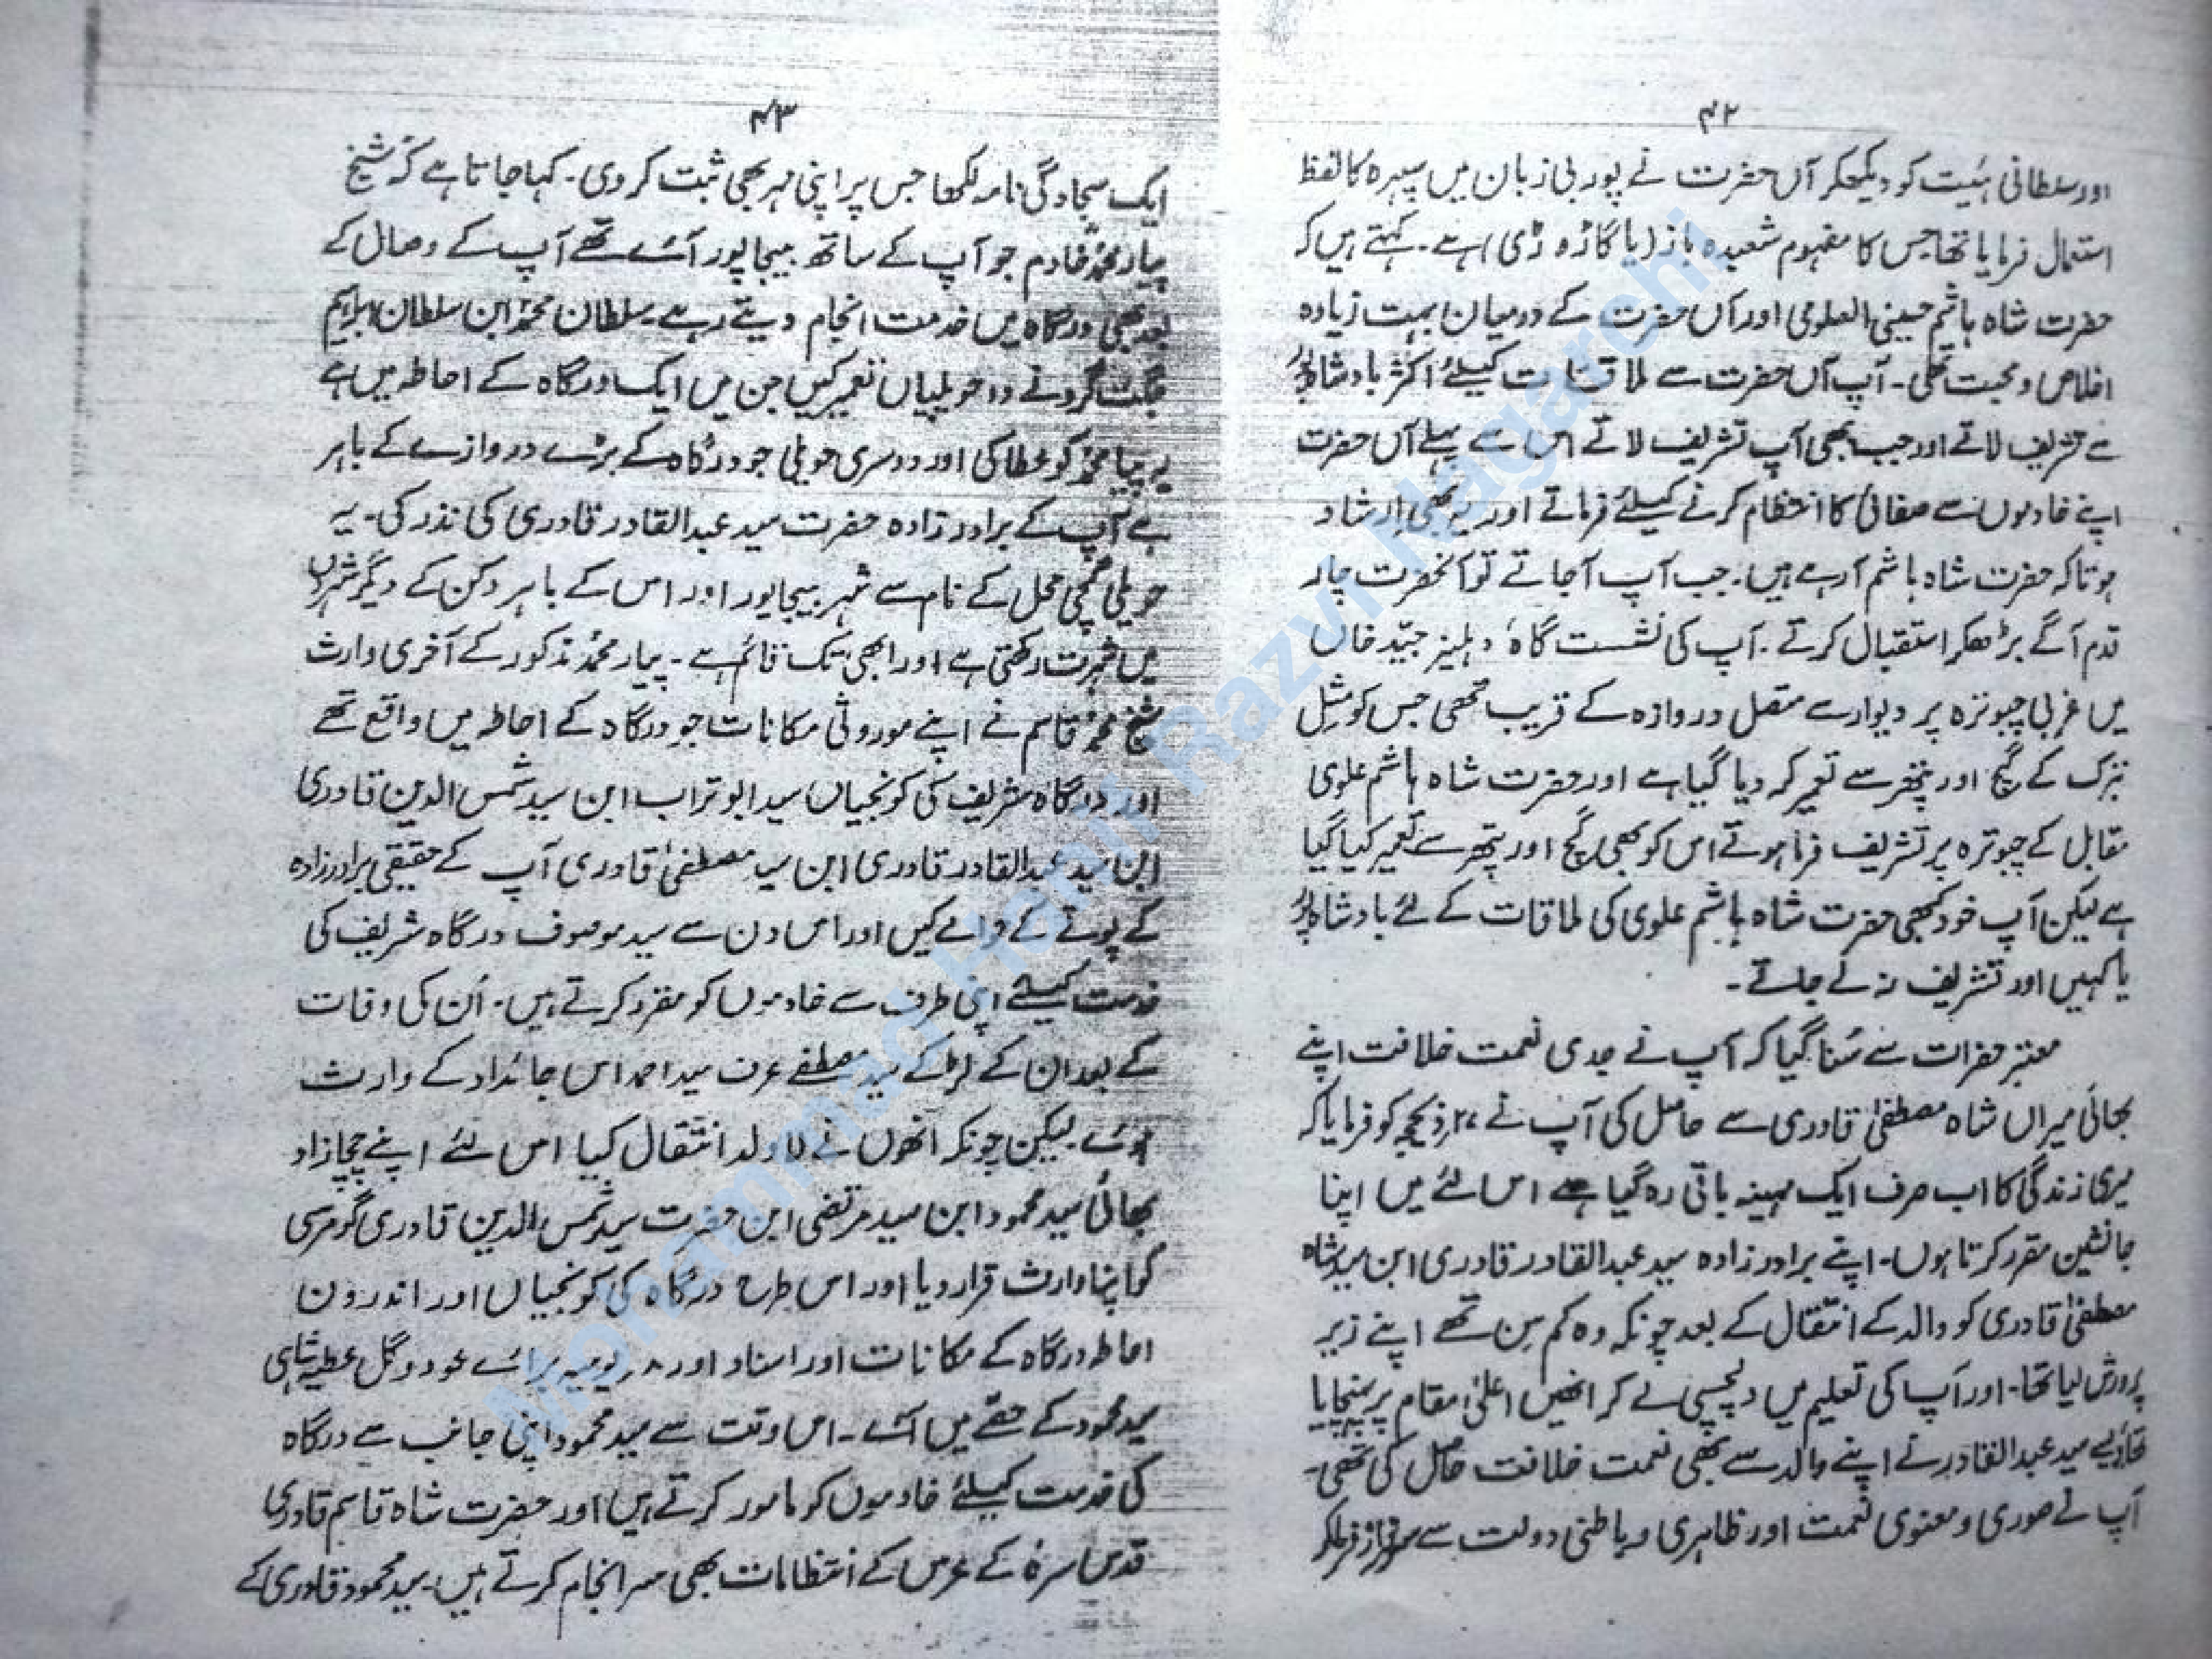 ۴۲
اور سلطانی ہئیت کو دیکھکر آں حضرت نے پوربی زبان میں سپہرہ کا لفظ
استعمال فرمایا تھا جس کا مفہوم شعبدہ باز (یا گاڑوڑی) ہے۔ کہتے ہیں کہ
حضرت شاہ ہاشم حسینی العلوی اور آں حضرت کے درمیان بہت زیادہ
اخلاص و محبت تھی۔ آپ آں حضرت سے ملاقات کیلئے اکثر بادشاہ پور
سے تشریف لاتے اور جب بھی آپ تشریف لاتے اس سے پہلے آں حضرت
اپنے خادموں سے صفائی کا انتظام کرنے کیلئے فرماتے اور یہ بھی ارشاد
ہوتا کہ حضرت شاہ ہاشم آرہے ہیں۔ جب آپ آجاتے تو آنحضرت چار
قدم آگے بڑھکر استقبال کرتے۔ آپ کی نشست گاہ دہلیز جنید خاں
میں غربی چبوترہ پر دیوار سے متصل دروازہ کے قریب تھی جس کو مثل
تبرک کے گچ اور پتھر سے تعمیر کر دیا گیا ہے اور حضرت شاہ ہاشم علوی
مقابل کے چبوترہ پر تشریف فرما ہوتے اس کو بھی گچ اور پتھر سے تعمیر کیا گیا
ہے لیکن آپ خود کبھی حضرت شاہ ہاشم علوی کی ملاقات کے لئے بادشاہ پور
یا کہیں اور تشریف نہ لے جاتے۔
معتبر حضرات سے سُنا گیا کہ آپ نے جدی نعمت خلافت اپنے
بھائی میراں شاہ مصطفیٰ قادری سے حاصل کی آپ نے ۲۷ ذیحجہ کو فرمایا کہ
میری زندگی کا اب صرف ایک مہینہ باقی رہ گیا ہے اس لئے میں اپنا
جانشین مقرر کرتا ہوں۔ اپنے برادر زادہ سید عبدالقادر قادری ابن سید شاہ
مصطفیٰ قادری کو والد کے انتقال کے بعد چونکہ وہ کم سن تھے اپنے زیر
پرورش لیا تھا۔ اور آپ کی تعلیم میں دلچسپی لے کر انھیں اعلیٰ مقام پر پہنچایا
تھا ویسے سید عبدالقادر نے اپنے والد سے بھی نعمت خلافت حاصل کی تھی۔
آپ نے صوری و معنوی نعمت اور ظاہری و باطنی دولت سے سرفراز فرماکر
۴۳
ایک سجادگی نامہ لکھا جس پر اپنی مہر بھی ثبت کر دی۔ کہا جاتا ہے کہ شیخ
پیار محمد خادم جو آپ کے ساتھ بیجاپور آئے تھے آپ کے وصال کے
بعد بھی درگاہ میں خدمت انجام دیتے رہے۔ سلطان محمد ابن سلطان ابراہیم
جگت گرو نے دو حویلیاں تعمیر کیں جن میں ایک درگاہ کے احاطہ میں ہے
یہ پیار محمد کو عطا کی اور دوسری حویلی جو درگاہ کے بڑے دروازے کے باہر
ہے آپ کے برادر زادہ حضرت سید عبدالقادر قادری کی نذر کی۔ یہ
حویلی گچی محل کے نام سے شہر بیجاپور اور اس کے باہر دکن کے دیگر شہروں
میں شہرت رکھتی ہے اور ابھی تک قائم ہے۔ پیار محمد مذکور کے آخری وارث
شیخ محمد قاسم نے اپنے موروثی مکانات جو درگاہ کے احاطہ میں واقع تھے
اور درگاہ شریف کی کونجیاں سید ابو تراب ابن سید شمس الدین قادری
ابن سید عبدالقادر قادری ابن سید مصطفیٰ قادری آپ کے حقیقی برادر زادہ
کے پوتے کے حوالے کیں اور اس دن سے سید موصوف درگاہ شریف کی
خدمت کیلئے اپنی طرف سے خادموں کو مقرر کرتے ہیں۔ اُن کی وفات
کے بعد ان کے لڑکے سید مصطفے عرف سید احمد اس جائداد کے وارث
ہوئے لیکن چونکہ انھوں نے لاولد انتقال کیا اس لئے اپنے چچازاد
بھائی سید محمود ابن سید مرتضی ابن حضرت سید شمس الدین قادری گومرسی
کو اپنا وارث قرار دیا اور اس طرح درگاہ کی کونجیاں اور اندرون
احاطہ درگاہ کے مکانات اور اسناد اور یومیہ برائے عود و گل عطیہ شاہی
سید محمود کے حصے میں آئے۔ اس وقت سے سید محمود اپنی جانب سے درگاہ
کی خدمت کیلئے خادموں کو مامور کرتے ہیں اور حضرت شاہ قاسم قادری
قدس سرہٗ کے عرس کے انتظامات بھی سرانجام کرتے ہیں۔ سید محمود قادری کے
Mohammad Hanif Razvi Nagarchi